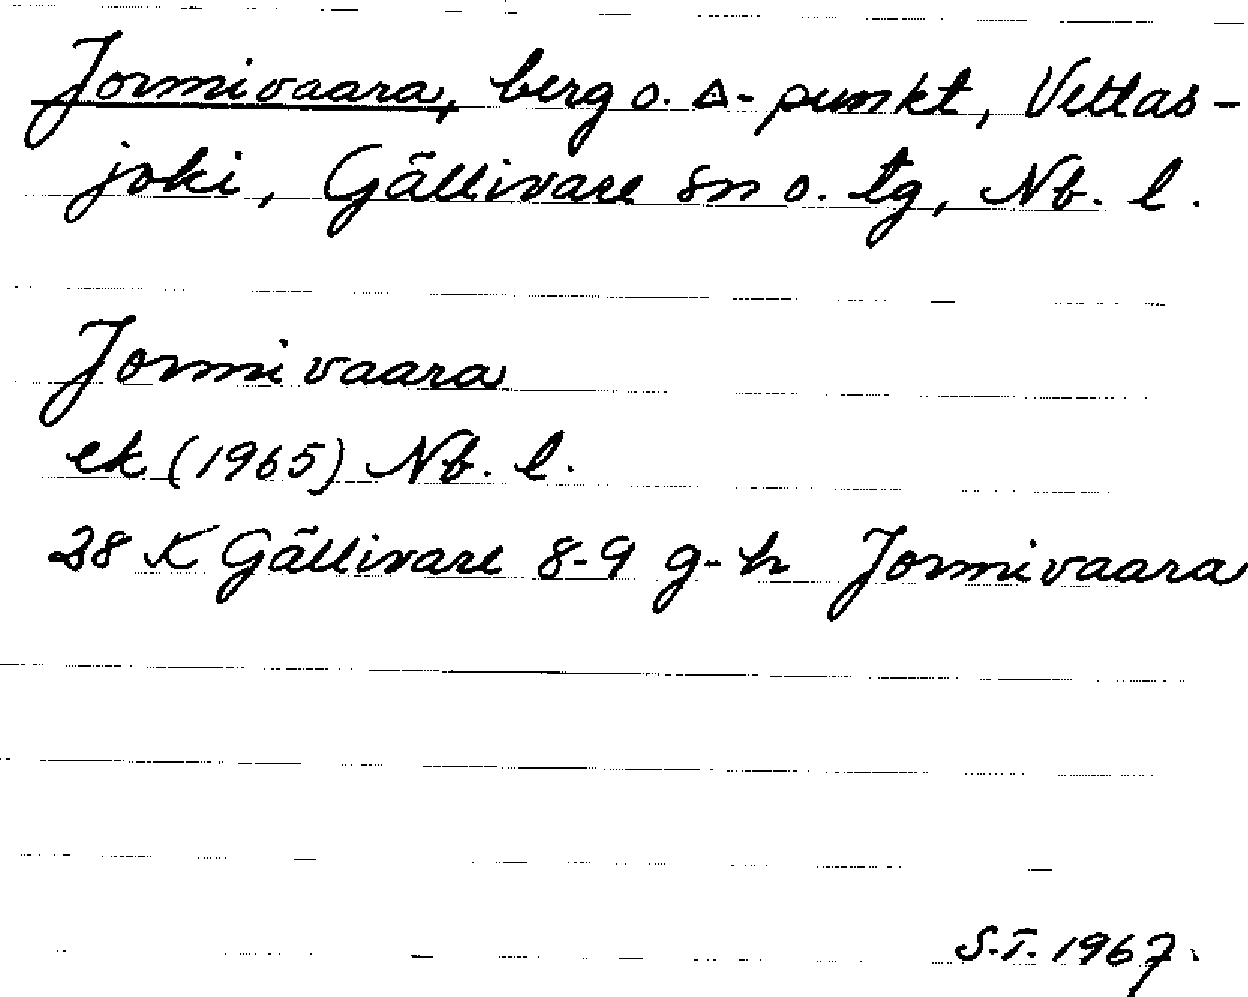 Jormivaara, berg o. △-punkt, Vettas-
joki, Gällivare sn o. tg, Nb. l.
Jormivaara
ek (1965) Nb. l.
28 K Gällivare 8-9 g-h Jormivaara
S.T. 1967.